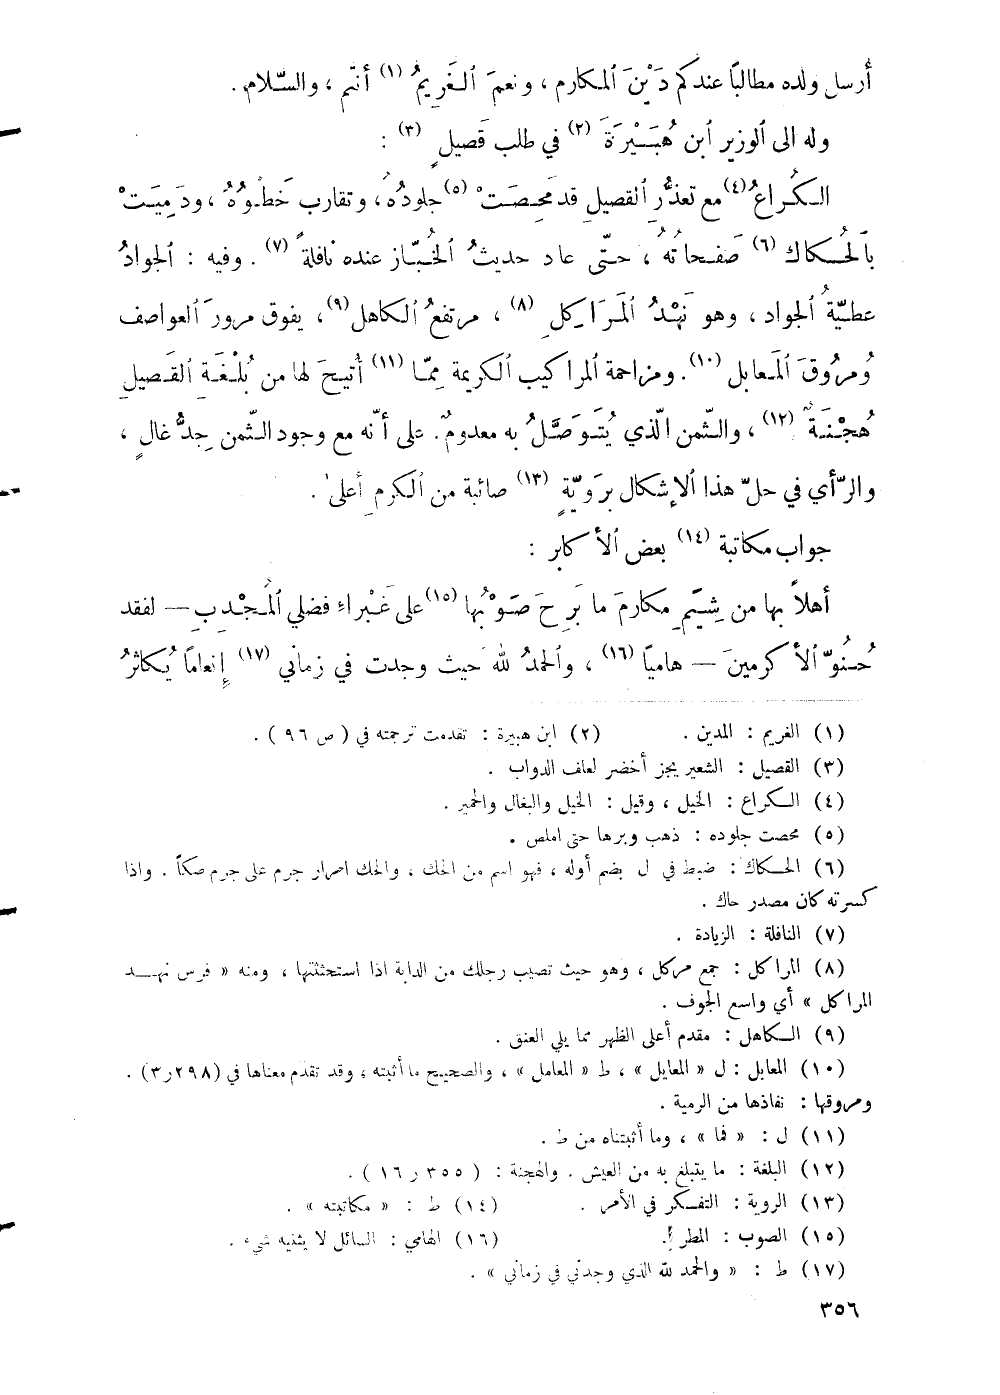 أرسل ولده مطالبًا عندكم دَيْنَ المكارم ، ونعمَ الغَرِيمُ (١) أنتم ، والسّلام .
وله الى الوزير ابن هُبَيْرَةَ (٢) في طلب قَصيلٍ (٣) :
الكُراعُ (٤) مع تعذُّرِ القصيلِ قد مَحِصَتْ (٥) جلودُهُ ، وتقارب خَطْوُهُ ، ودَمِيَتْ
بالحُكاك (٦) صَفحاتُهُ ، حتّى عاد حديثُ الخُبّاز عنده نافلةً (٧) . وفيه : الجوادُ
عطيّةُ الجواد ، وهو نَهْدُ المَرَاكلِ (٨) ، مرتفعُ الكاهل (٩) ، يفوق مرورَ العواصف
ومُروُقَ المَعابل (١٠) . ومزاحمة المراكيب الكريمة مِمّا (١١) أُتيحَ لها من بُلْغَةِ القَصيلِ
هُجْنَةٌ (١٢) ، والثّمن الّذي يُتَوَصَّلُ به معدومٌ . على أنّه مع وجود الثّمن جِدُّ غالٍ ،
والرّأي في حلّ هذا الإشكال برَوِيّةٍ (١٣) صائبة من الكرمِ أعلى .
جواب مكاتبة (١٤) بعض الأكابر :
أهلاً بها من شِيَمِ مكارمَ ما بَرِحَ صَوْبُها (١٥) على غَبْراءِ فضلي المُجْدِبِ — لفقد
حُنُوّ الأكرمينَ — هامياً (١٦) ، والحمدُ لله حيث وجدت في زماني (١٧) إنعامًا يُكاثرُ
(١) الغريم : المدين .    (٢) ابن هبيرة : تقدمت ترجمته في ( ص ٩٦ ) .
(٣) القصيل : الشعير يجز أخضر لعلف الدواب .
(٤) الكراع : الخيل ، وقيل : الخيل والبغال والحمير .
(٥) محصت جلوده : ذهب وبرها حتى املص .
(٦) الحكاك : ضبط في ل بضم أوله ، فهو اسم من الحك ، والحك امرار جرم على جرم صكاً . واذا
كسرته كان مصدر حاك .
(٧) النافلة : الزيادة .
(٨) المراكل : جمع مركل ، وهو حيث تصيب رجلك من الدابة اذا استحثثتها ، ومنه « فرس نهد
المراكل » أي واسع الجوف .
(٩) الكاهل : مقدم أعلى الظهر مما يلي العنق .
(١٠) المعابل : ل « المعايل » ، ط « المعامل » ، والصحيح ما أثبته ، وقد تقدم معناها في (٢٩٨ر٣) .
ومروقها : نفاذها من الرمية .
(١١) ل : « فما » ، وما أثبتناه من ط .
(١٢) البلغة : ما يتبلغ به من العيش . والهجنة : ( ٣٥٥ ر ١٦ ) .
(١٣) الروية : التفكر في الأمر .    (١٤) ط : « مكاتبته » .
(١٥) الصوب : المطر .    (١٦) الهامي : السائل لا يثنيه شيء .
(١٧) ط : « والحمد لله الذي وجدني في زماني » .
٣٥٦